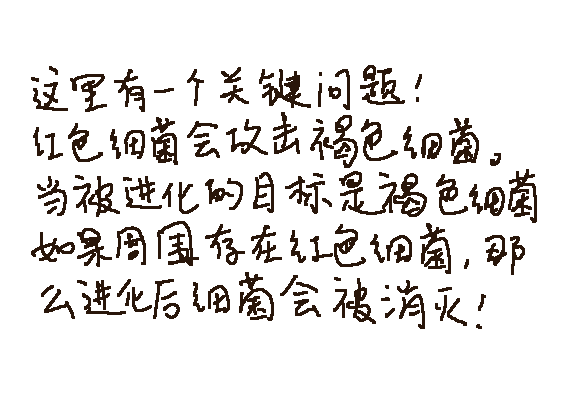 这里有一个关键问题!
红色细菌会攻击褐色细菌。
当被进化的目标是褐色细菌
如果周围存在红色细菌,那
么进化后细菌会被消灭!